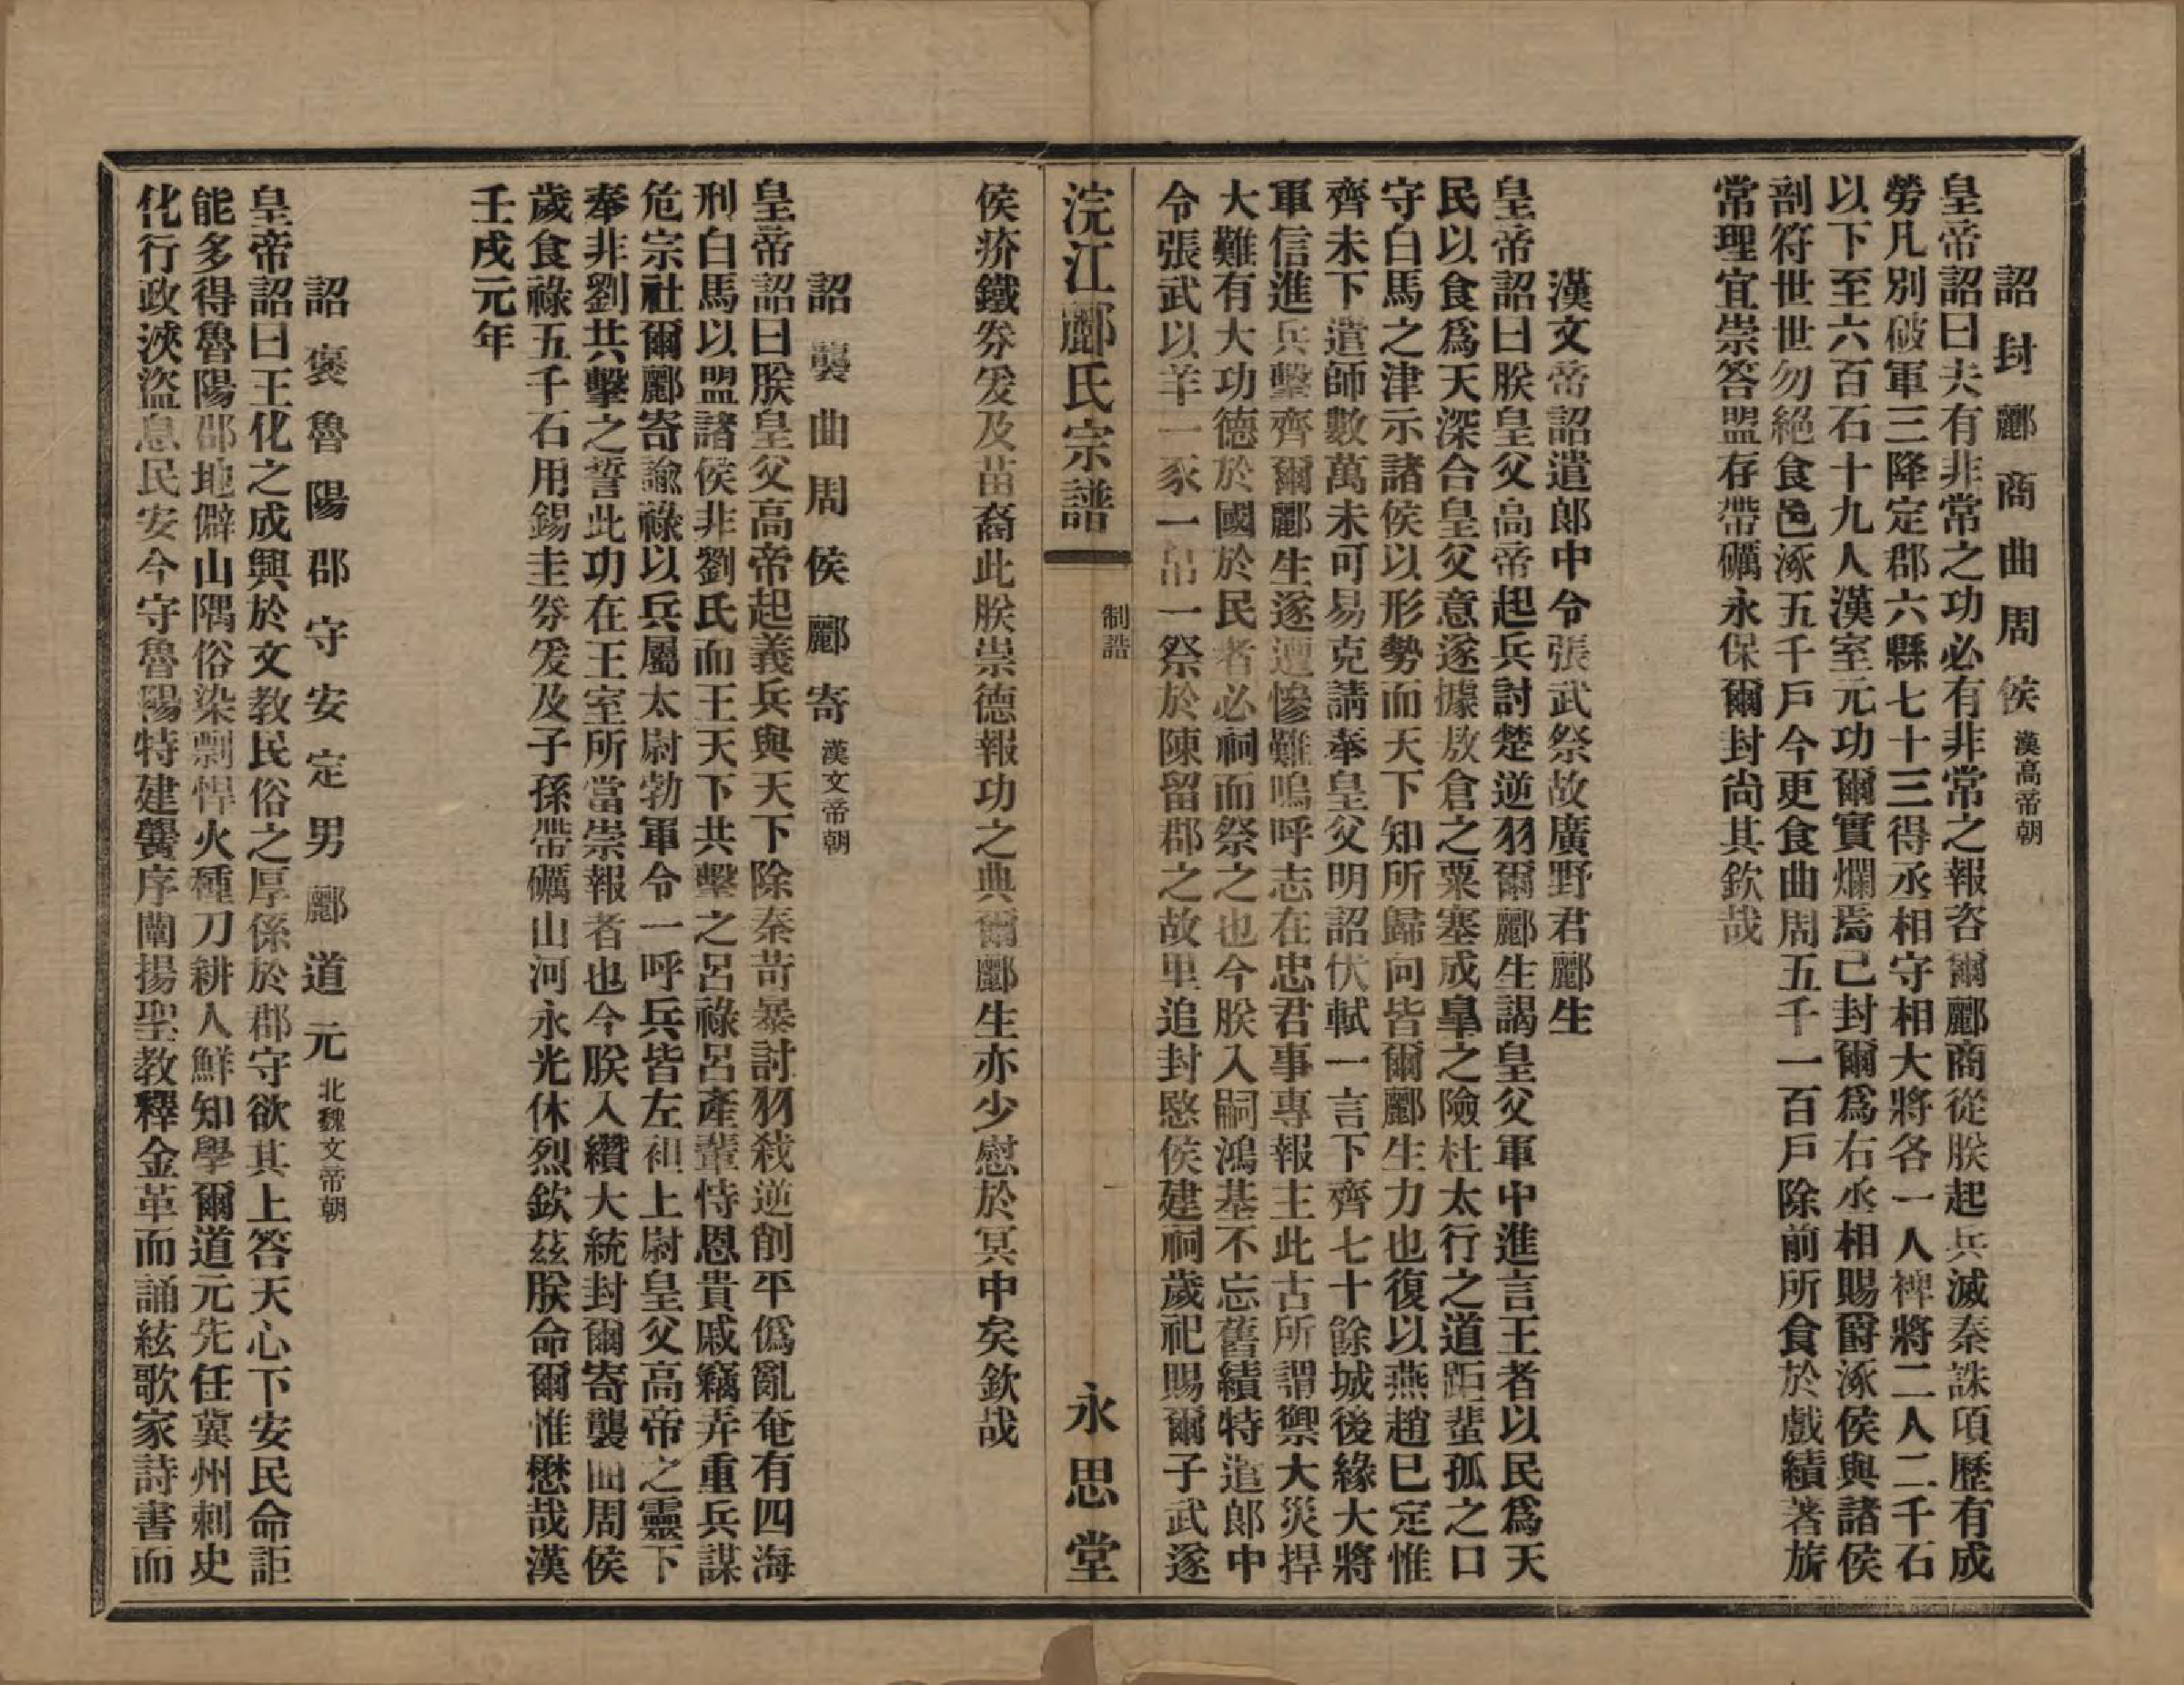 詔封酈商曲周侯漢高帝朝
皇帝詔曰夫有非常之功必有非常之報咨爾酈商從朕起兵滅秦誅項歷有成
勞凡別破軍三降定郡六縣七十三得丞相守相大將各一人裨將二人二千石
以下至六百石十九人漢室元功爾實爛焉已封爾爲右丞相賜爵涿侯與諸侯
剖符世世勿絕食邑涿五千戶今更食曲周五千一百戶除前所食於戲績著旂
常理宜崇答盟存帶礪永保爾封尚其欽哉
漢文帝詔遣郎中令張武祭故廣野君酈生
皇帝詔曰朕皇父高帝起兵討楚逆羽爾酈生謁皇父軍中進言王者以民爲天
民以食爲天深合皇父意遂據敖倉之粟塞成臯之險杜太行之道距蜚孤之口
守白馬之津示諸侯以形勢而天下知所歸向皆爾酈生力也復以燕趙已定惟
齊未下遣師數萬未可易克請奉皇父明詔伏軾一言下齊七十餘城後緣大將
軍信進兵擊齊爾酈生遂遭慘難嗚呼志在忠君事專報主此古所謂禦大災捍
大難有大功德於國於民者必祠而祭之也今朕入嗣鴻基不忘舊績特遣郎中
令張武以羊一豕一帛一祭於陳留郡之故里追封愍侯建祠歲祀賜爾子武遂
浣江酈氏宗譜
制誥
一
永思堂
侯疥鐵券爰及苗裔此朕崇德報功之典爾酈生亦少慰於冥中矣欽哉
詔襲曲周侯酈寄漢文帝朝
皇帝詔曰朕皇父高帝起義兵與天下除秦苛暴討羽殺逆削平僞亂奄有四海
刑白馬以盟諸侯非劉氏而王天下共擊之呂祿呂產輩恃恩貴戚竊弄重兵謀
危宗社爾酈寄諭祿以兵屬太尉勃軍令一呼兵皆左袒上尉皇父高帝之靈下
奉非劉共擊之誓此功在王室所當崇報者也今朕入纘大統封爾寄襲曲周侯
歲食祿五千石用錫圭券爰及子孫帶礪山河永光休烈欽茲朕命爾惟懋哉漢
壬戌元年
詔褒魯陽郡守安定男酈道元北魏文帝朝
皇帝詔曰王化之成興於文教民俗之厚係於郡守欲其上答天心下安民命詎
能多得魯陽郡地僻山隅俗染剽悍火種刀耕人鮮知學爾道元先任冀州刺史
化行政浹盜息民安今守魯陽特建黌序闡揚聖教釋金革而誦絃歌家詩書而